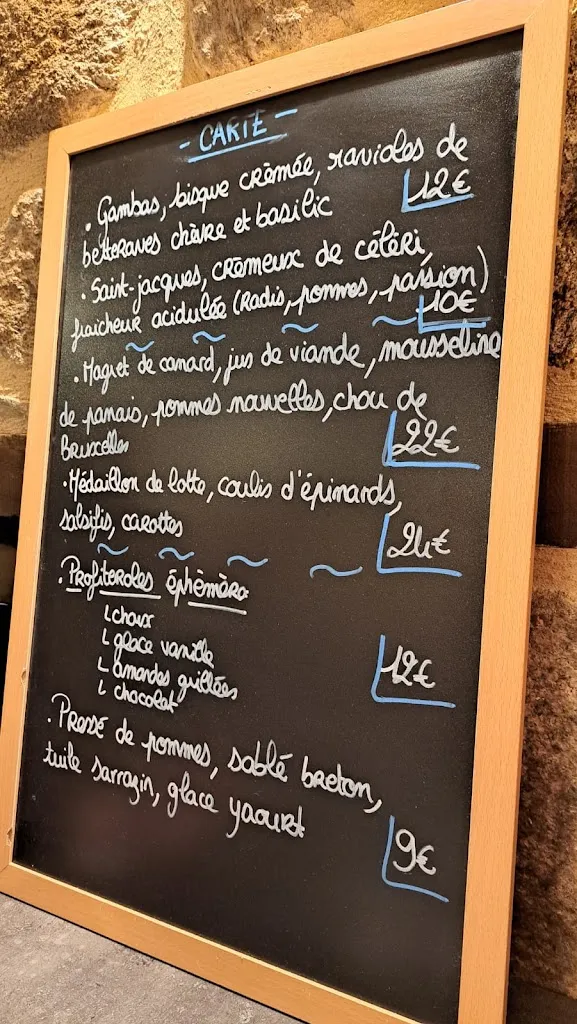 - CARTE -
• Gambas, bisque crèmée, ravioles de
betteraves chèvre et basilic
12€
• Saint-jacques, crèmeux de céléri,
fraicheur acidulée (Radis, pommes, passion)
10€
• Magret de canard, jus de viande, mousseline
de panais, pommes nouvelles, chou de
Bruxelles
22€
• Médaillon de lotte, coulis d'épinards,
salsifis, carottes
24€
• Profiteroles éphèmère
└ choux
└ glace vanille
└ amandes grillées
└ chocolat
12€
• Pressé de pommes, sablé breton,
tuile sarrazin, glace yaourt
9€